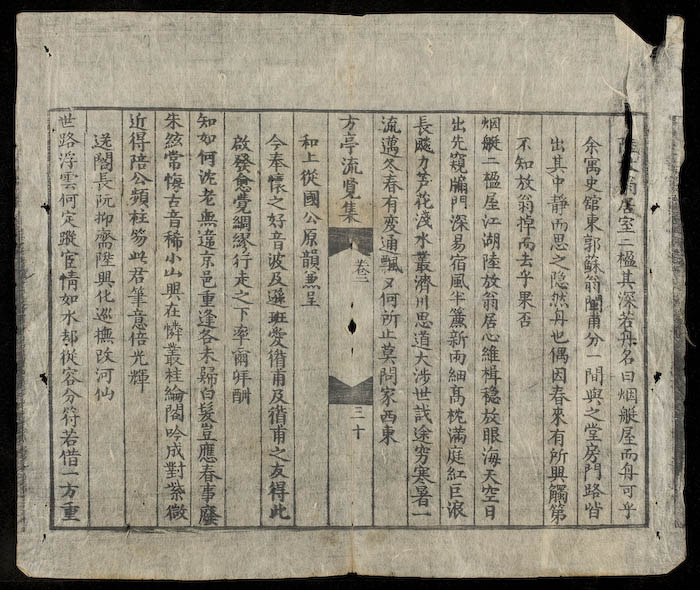 翁居室二楹其深若舟名曰烟艇屋而舟可乎
余寓史舘東郭蘇翁閩甫分一間與之堂房門路皆
出其中靜而思之隐然舟也偶因春來有所興觸第
不知放翁掉而去乎果否
烟艇二楹屋江湖陸放翁居心維楫穏放眼海天空日
出先窺牗門深易宿風半簾新雨細髙枕滿庭紅巨浪
長颷力芦花淺水叢濟川思道大涉世戒途穷寒暑一
流邁冬春有変通飄又何所止莫問家西東
方亭流覧集
卷二
三十
和上從國公原韻兼呈
今奉懷之好音波及遜班愛循甫及循甫之友得此
啟發愈覺綢繆行走之下率爾咩酬
知如何沈老無遠京邑重逢各未歸白髮豈應春事廢
朱絃常悔古音稀小山興在憐叢桂綸閣吟成對紫微
近得陪公頻柱笏此君筆意倍光輝
送閣長阮抑齋陞興化巡撫改河仙
世路浮雲何定蹤宦情如水却從容分符若借一方重